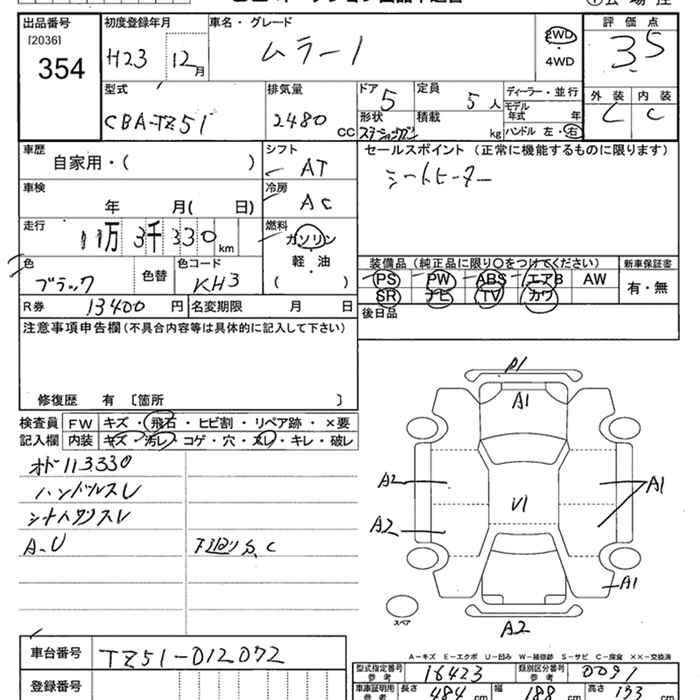 出品番号 初度登録年月 車名・グレード 評価点
[2036]
354
H23 12月 ムラーノ 2WD・4WD 3.5
型式 排気量 ドア 5 定員 5人 ディーラー・並行 外装 内装
CBA-TZ51 2480 CC 形状 ステーションワゴン 積載 kg モデル年式 年 C C
ハンドル 左・右
車歴 自家用・( ) シフト AT セールスポイント (正常に機能するものに限ります)
シートヒーター
車検 年 月( 日) 冷房 AC
走行 11万3千330km 燃料 ガソリン・軽・油 ( )
色 ブラック 色替 色コード KH3
装備品 (純正品に限り○をつけてください) 新車保証書
PS PW ABS エアB AW 有・無
SR ナビ TV カワ
R券 13400円 名変期限 月 日 後日品
注意事項申告欄 (不具合内容等は具体的に記入して下さい)
修復歴 有 [箇所 ]
検査員記入欄 FW キズ・飛石・ヒビ割・リペア跡・×要
内装 キズ・汚レ・コゲ・穴・スレ・キレ・破レ
オド113330
ハンドルスレ
シートスレ
A.U 下廻りS.C
P1
A1
A2
A1
U1
A2
A1
スペア
A2
A-キズ E-エクボ U-凹み W-補修跡 S-サビ C-腐食 ××-交換済
車台番号 TZ51-012072
登録番号
型式指定番号 参考 16423 類別区分番号 参考 0091
車庫証明用 参考 長さ 484 cm 幅 188 cm 高さ 173 cm